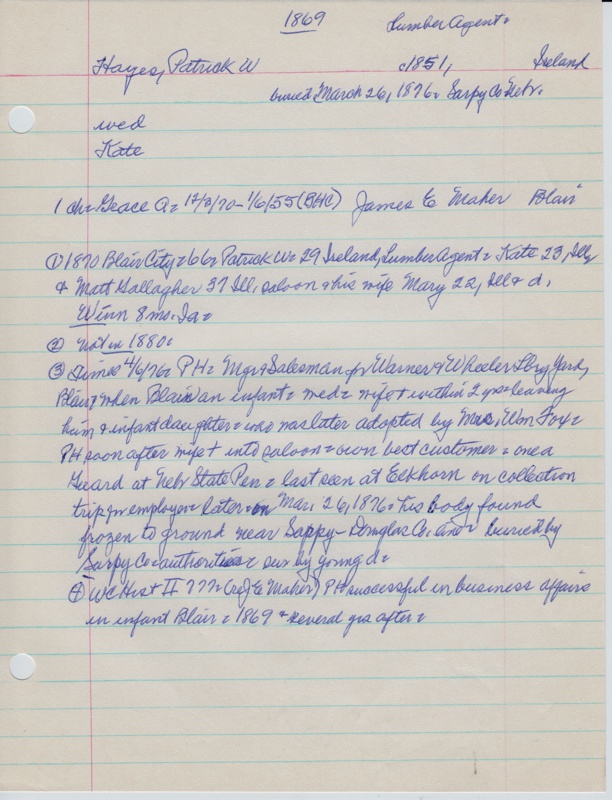 1869 Lumber Agent=
Hayes, Patrick W c1851, Ireland
buried March 26, 1876= Sarpy Co Nebr.
wed
Kate
1 ch= Grace A= 12/8/70-1/6/55 (BHC) James E Maher Blair
① 1870 Blair City= 66= Patrick W= 29 Ireland, Lumber Agent= Kate 23, Ill,
& Matt Gallagher 37 Ill, saloon & his wife Mary 22, Ill & d.
Winn 8 mo. Ia=
② Not in 1880=
③ Times 4/6/76= PH= Mgr & Salesman for Warner & Wheeler Lbr Yard,
Blair, when Blair an infant= wed= wife † within 2 yrs= leaving
him & infant daughter= who was later adopted by Mrs. Wm Fox=
PH soon after wife † into saloon= own best customer= once a
Guard at Nebr State Pen= last seen at Elkhorn on collection
trip for employer= later= on Mar. 26, 1876= his body found
frozen to ground near Sarpy- Douglas Co. and= buried by
Sarpy Co= authorities= sur by young d=
④ WC Hist II 777= (re J E Maher) PH successful in business affairs
in infant Blair= 1869 & several yrs after=